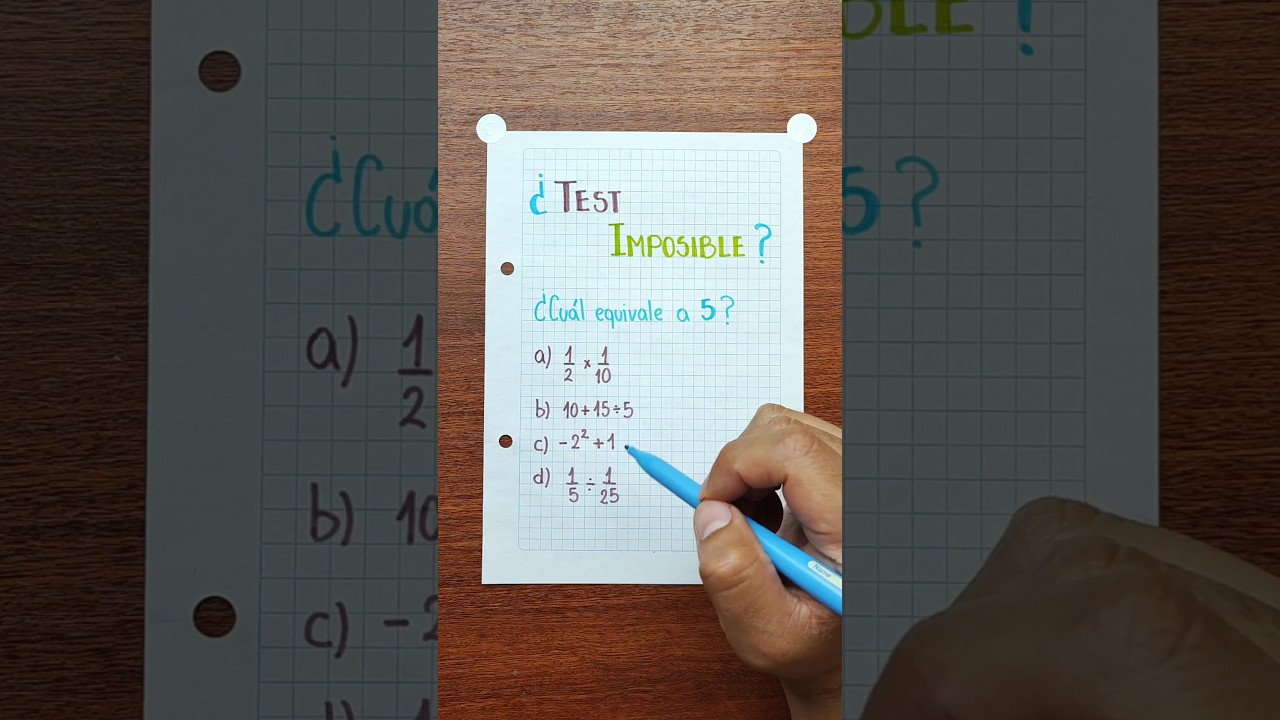 ¿TEST
IMPOSIBLE?
¿Cuál equivale a 5?
a) 1/2 × 1/10
b) 10+15÷5
c) -2²+1
d) 1/5 ÷ 1/25